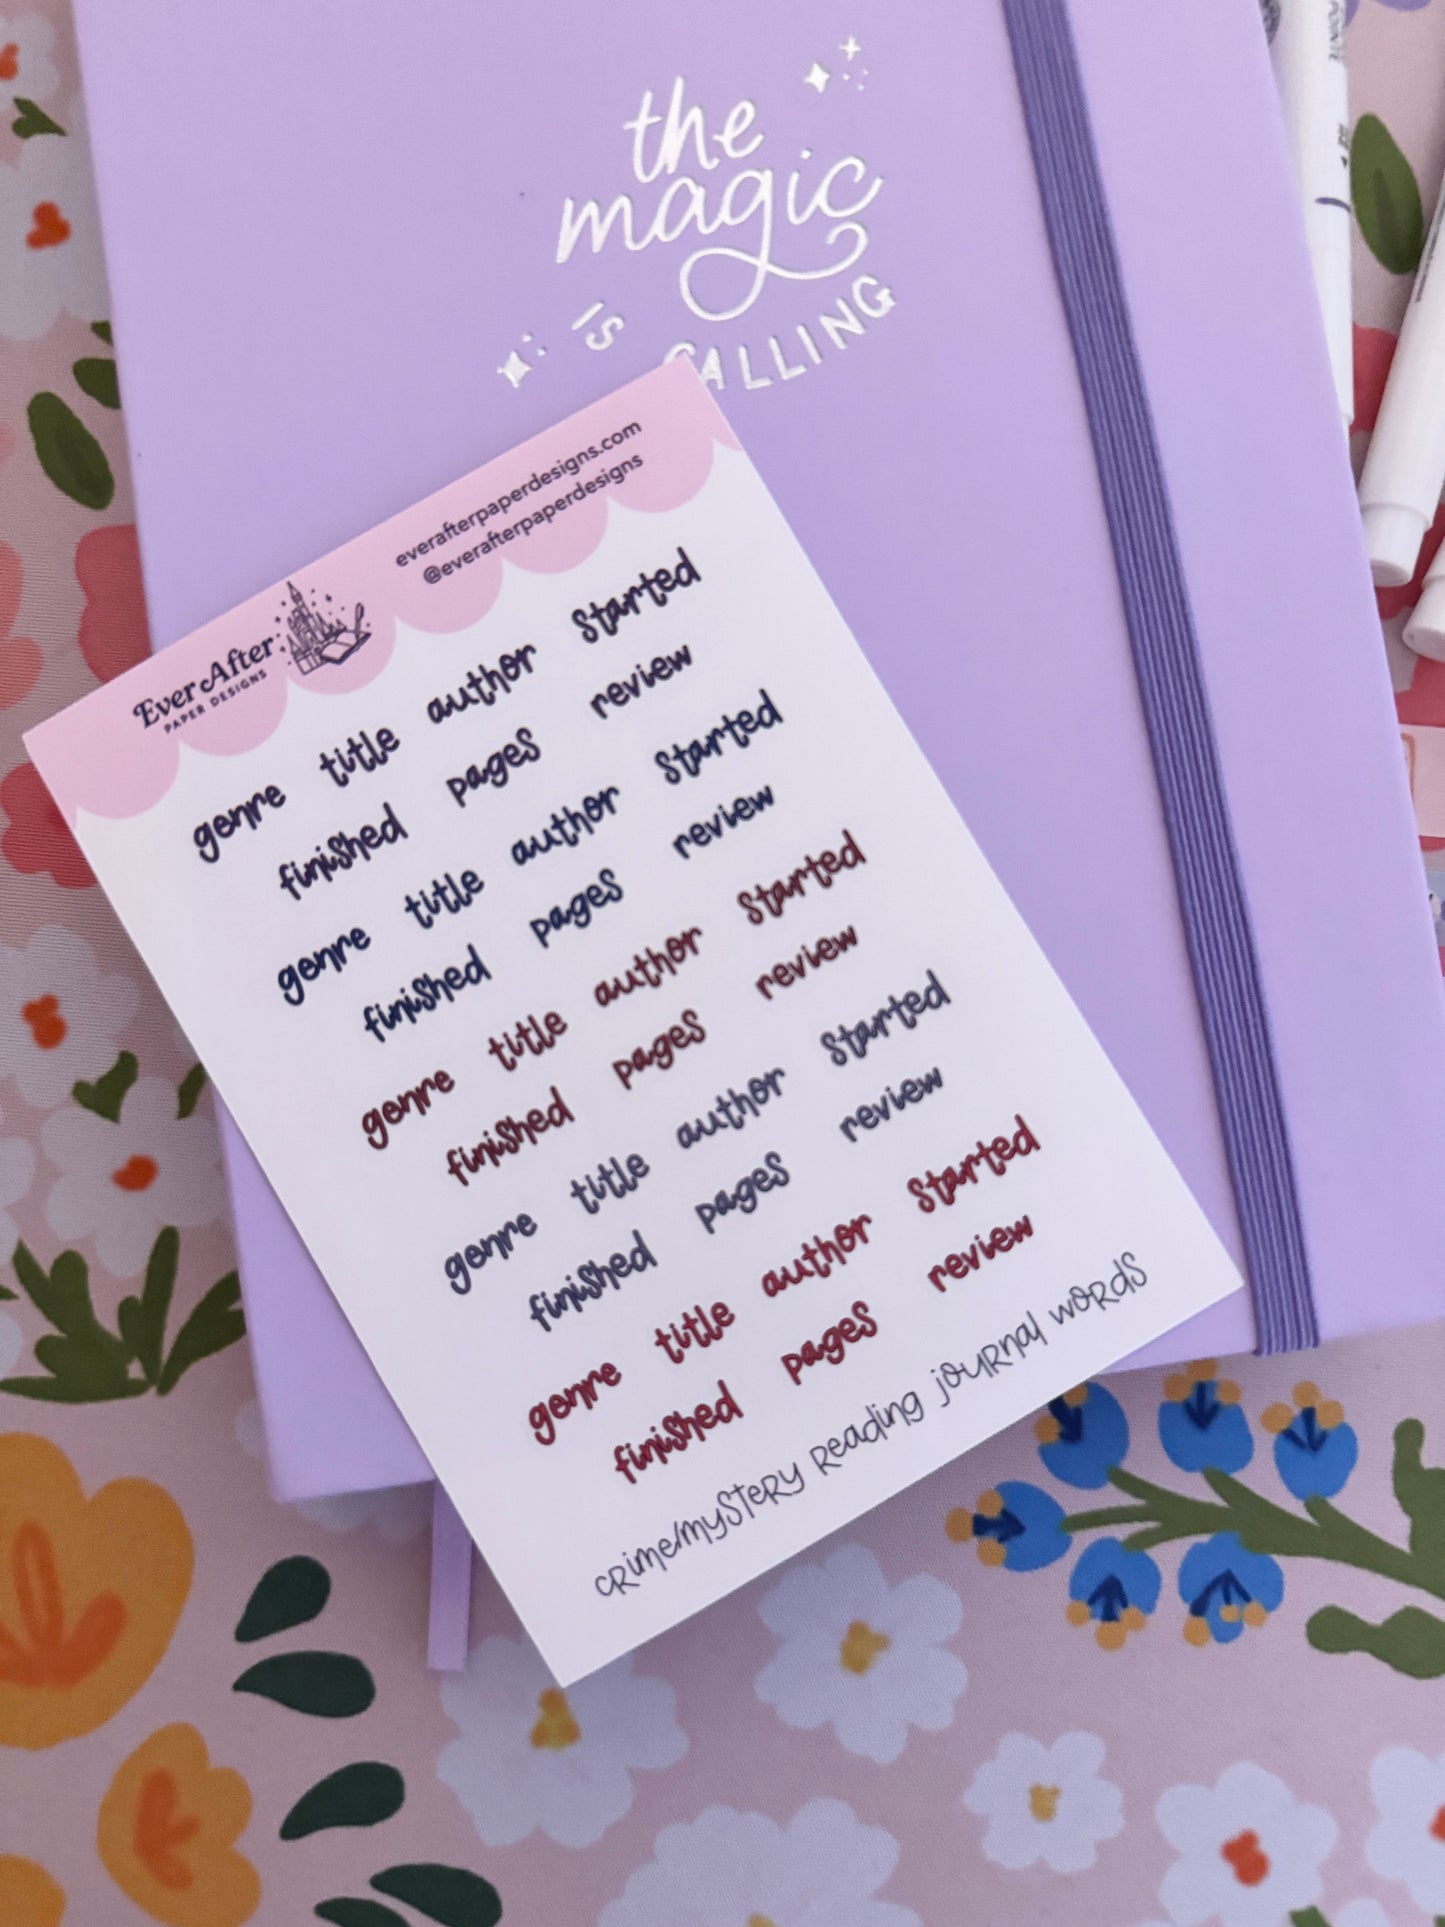 the
magic
IS CALLING
everafterpaperdesigns.com
@everafterpaperdesigns
Ever After
PAPER DESIGNS
genre title author started
finished pages review
genre title author started
finished pages review
genre title author started
finished pages review
genre title author started
finished pages review
genre title author started
finished pages review
crime/mystery reading journal words
POINTE